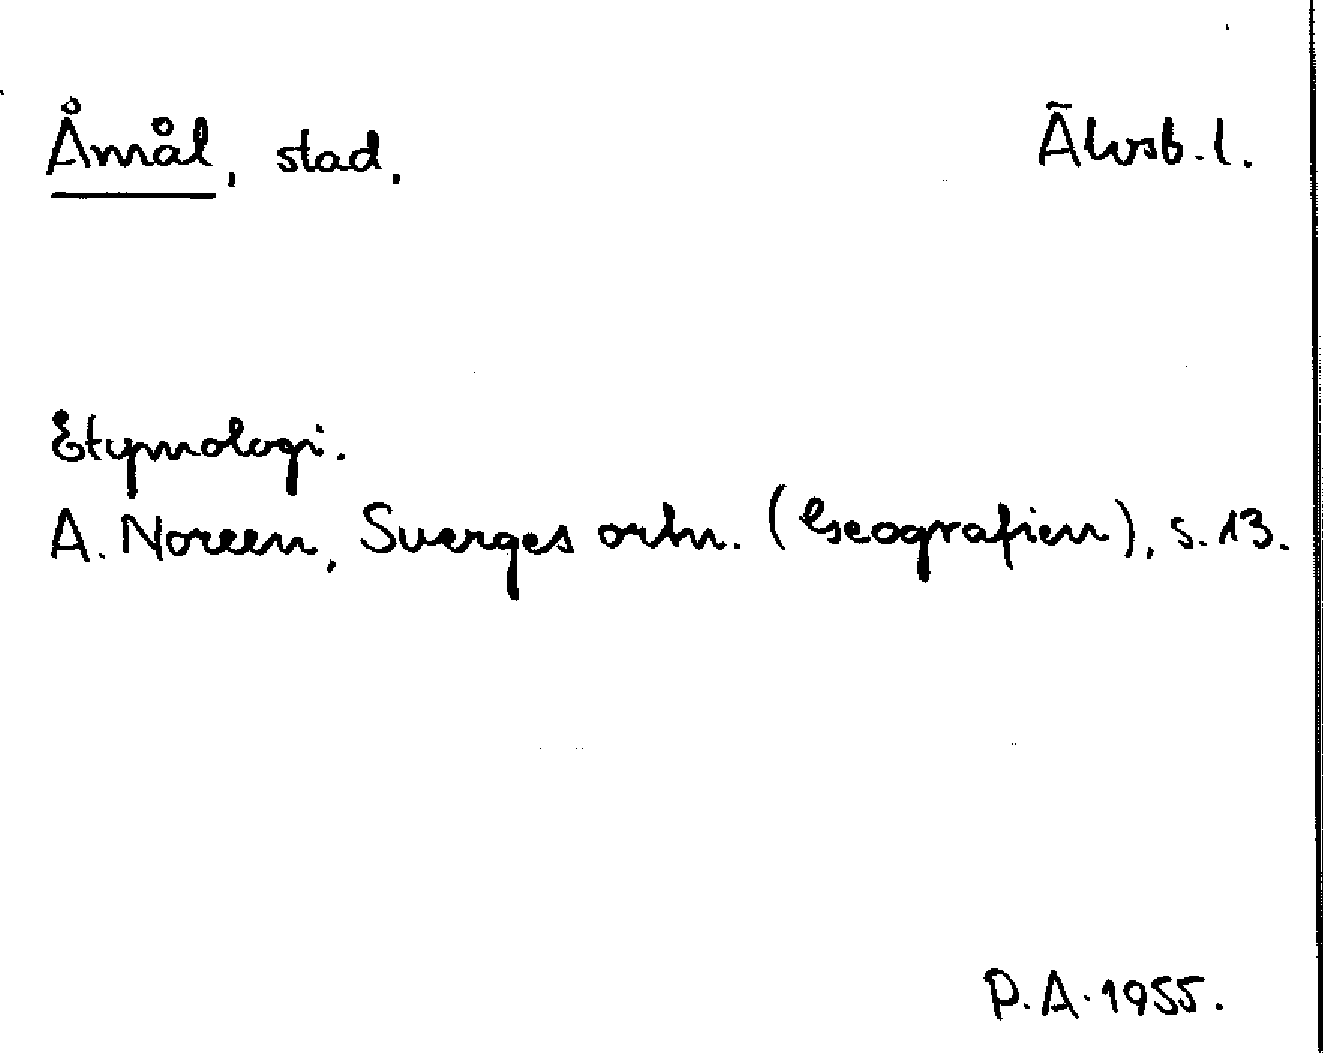 Åmål, stad. Älvsb. l.
Etymologi.
A. Noreen, Sverges ortn. (Geografien), s. 13.
P.A. 1955.